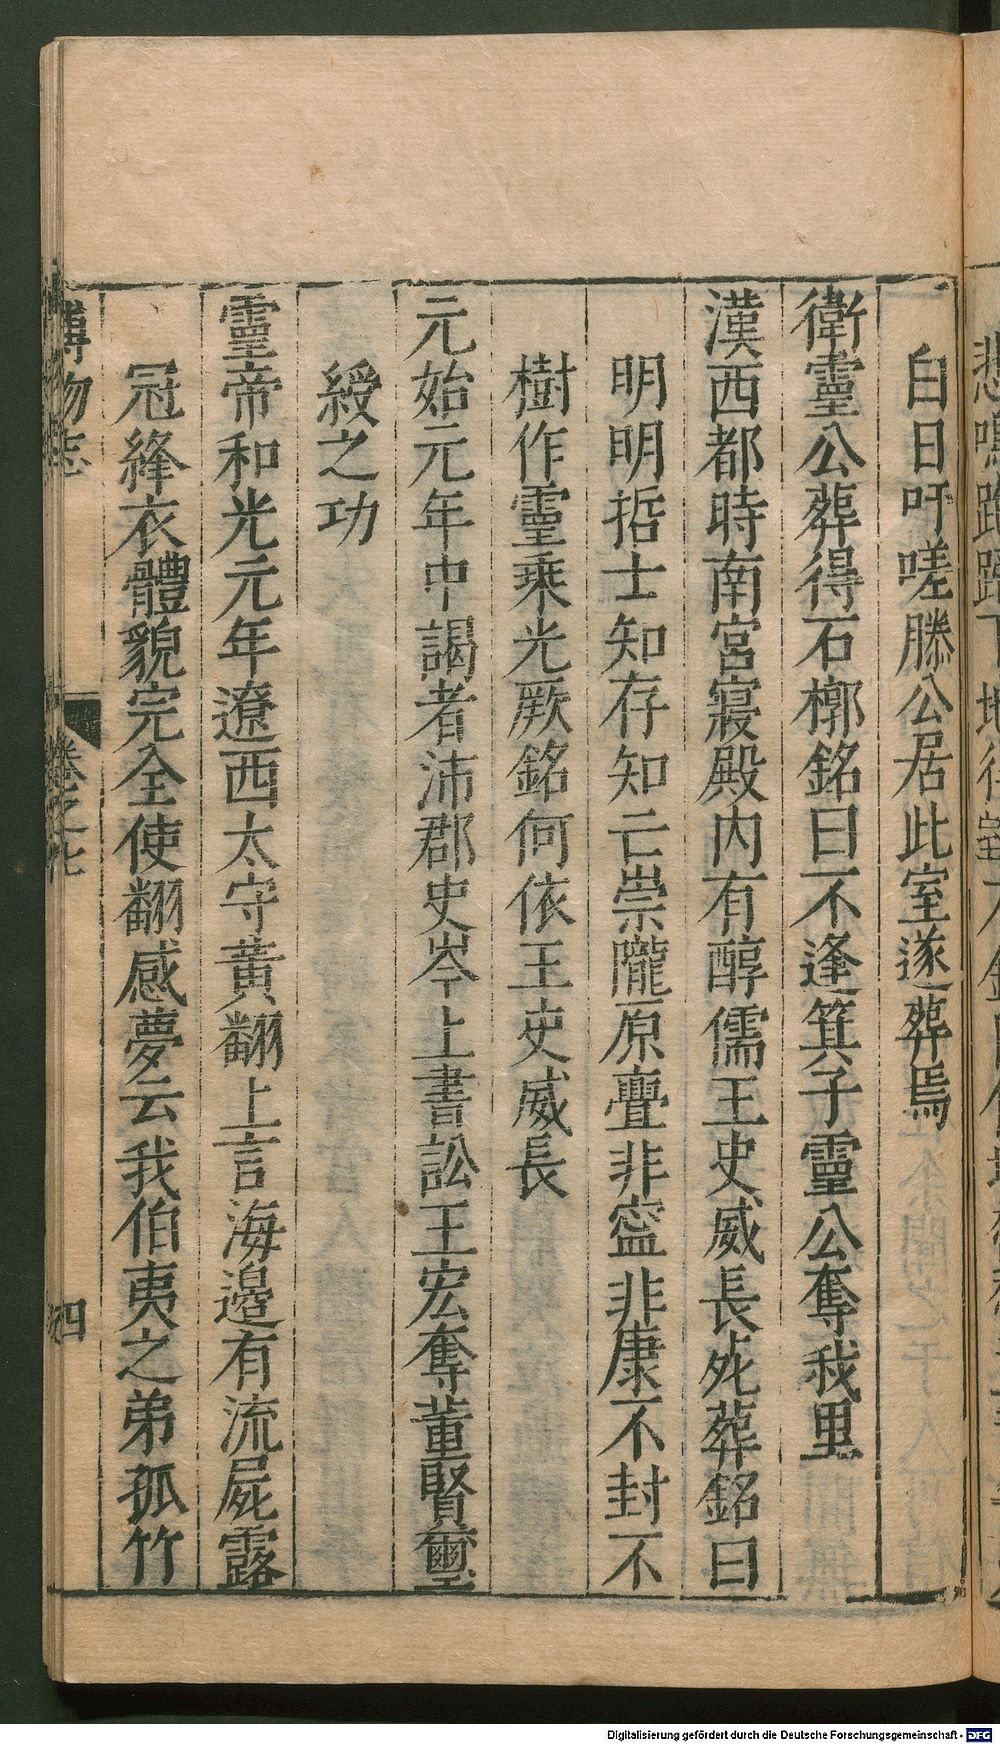 白日吁嗟滕公居此室遂葬焉
衛靈公葬得石槨銘曰不逢箕子靈公奪我里
漢西都時南宮寢殿內有醇儒王史威長死葬銘曰
明明哲士知存知亡崇隴原亹非寍非康不封不
樹作靈乘光厥銘何依王史威長
元始元年中謁者沛郡史岑上書訟王宏奪董賢璽
綬之功
靈帝和光元年遼西太守黃翻上言海邊有流屍露
冠絳衣體貌完全使翻感夢云我伯夷之弟孤竹
博物志
卷之七
四
Digitalisierung gefördert durch die Deutsche Forschungsgemeinschaft - DFG